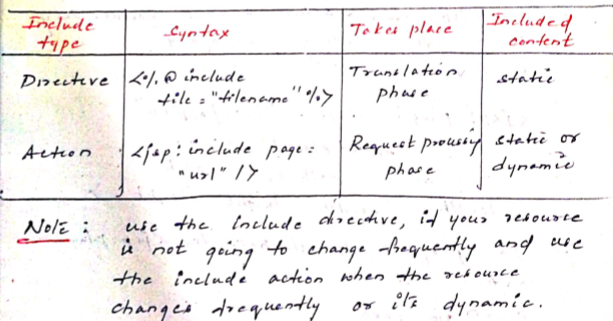 Include type | Syntax | Takes place | Included content
Directive | <%@ include file = "filename" %> | Translation phase | static
Action | <jsp: include page = "url" /> | Request processing phase | static or dynamic
Note : use the include directive, if your resource
is not going to change frequently and use
the include action when the resource
changes frequently or its dynamic.